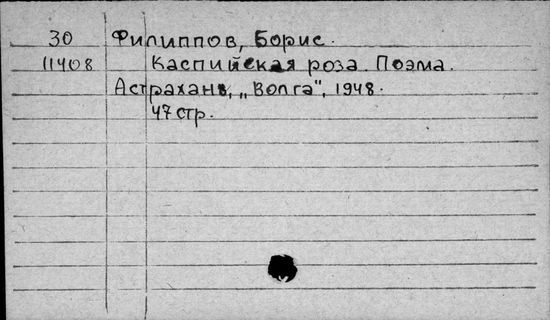 30 Филиппов, Борис.
11408 Каспийская роза. Поэма.
Астрахань, „Волга", 1948.
47 стр.